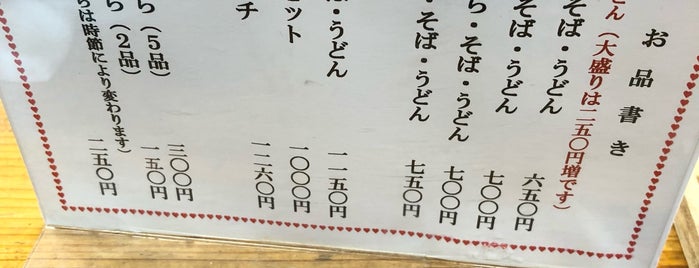 お品書き
どん（大盛りは二五〇円増です）
そば・うどん 六五〇円
そば・うどん 七〇〇円
ら・そば・うどん 七〇〇円
・そば・うどん 七五〇円
ば・うどん 一一五〇円
セット 一〇〇〇円
チ 一二六〇円
ら（５品） 三〇〇円
ら（２品） 一五〇円
らは時節により変わります）
二五〇円